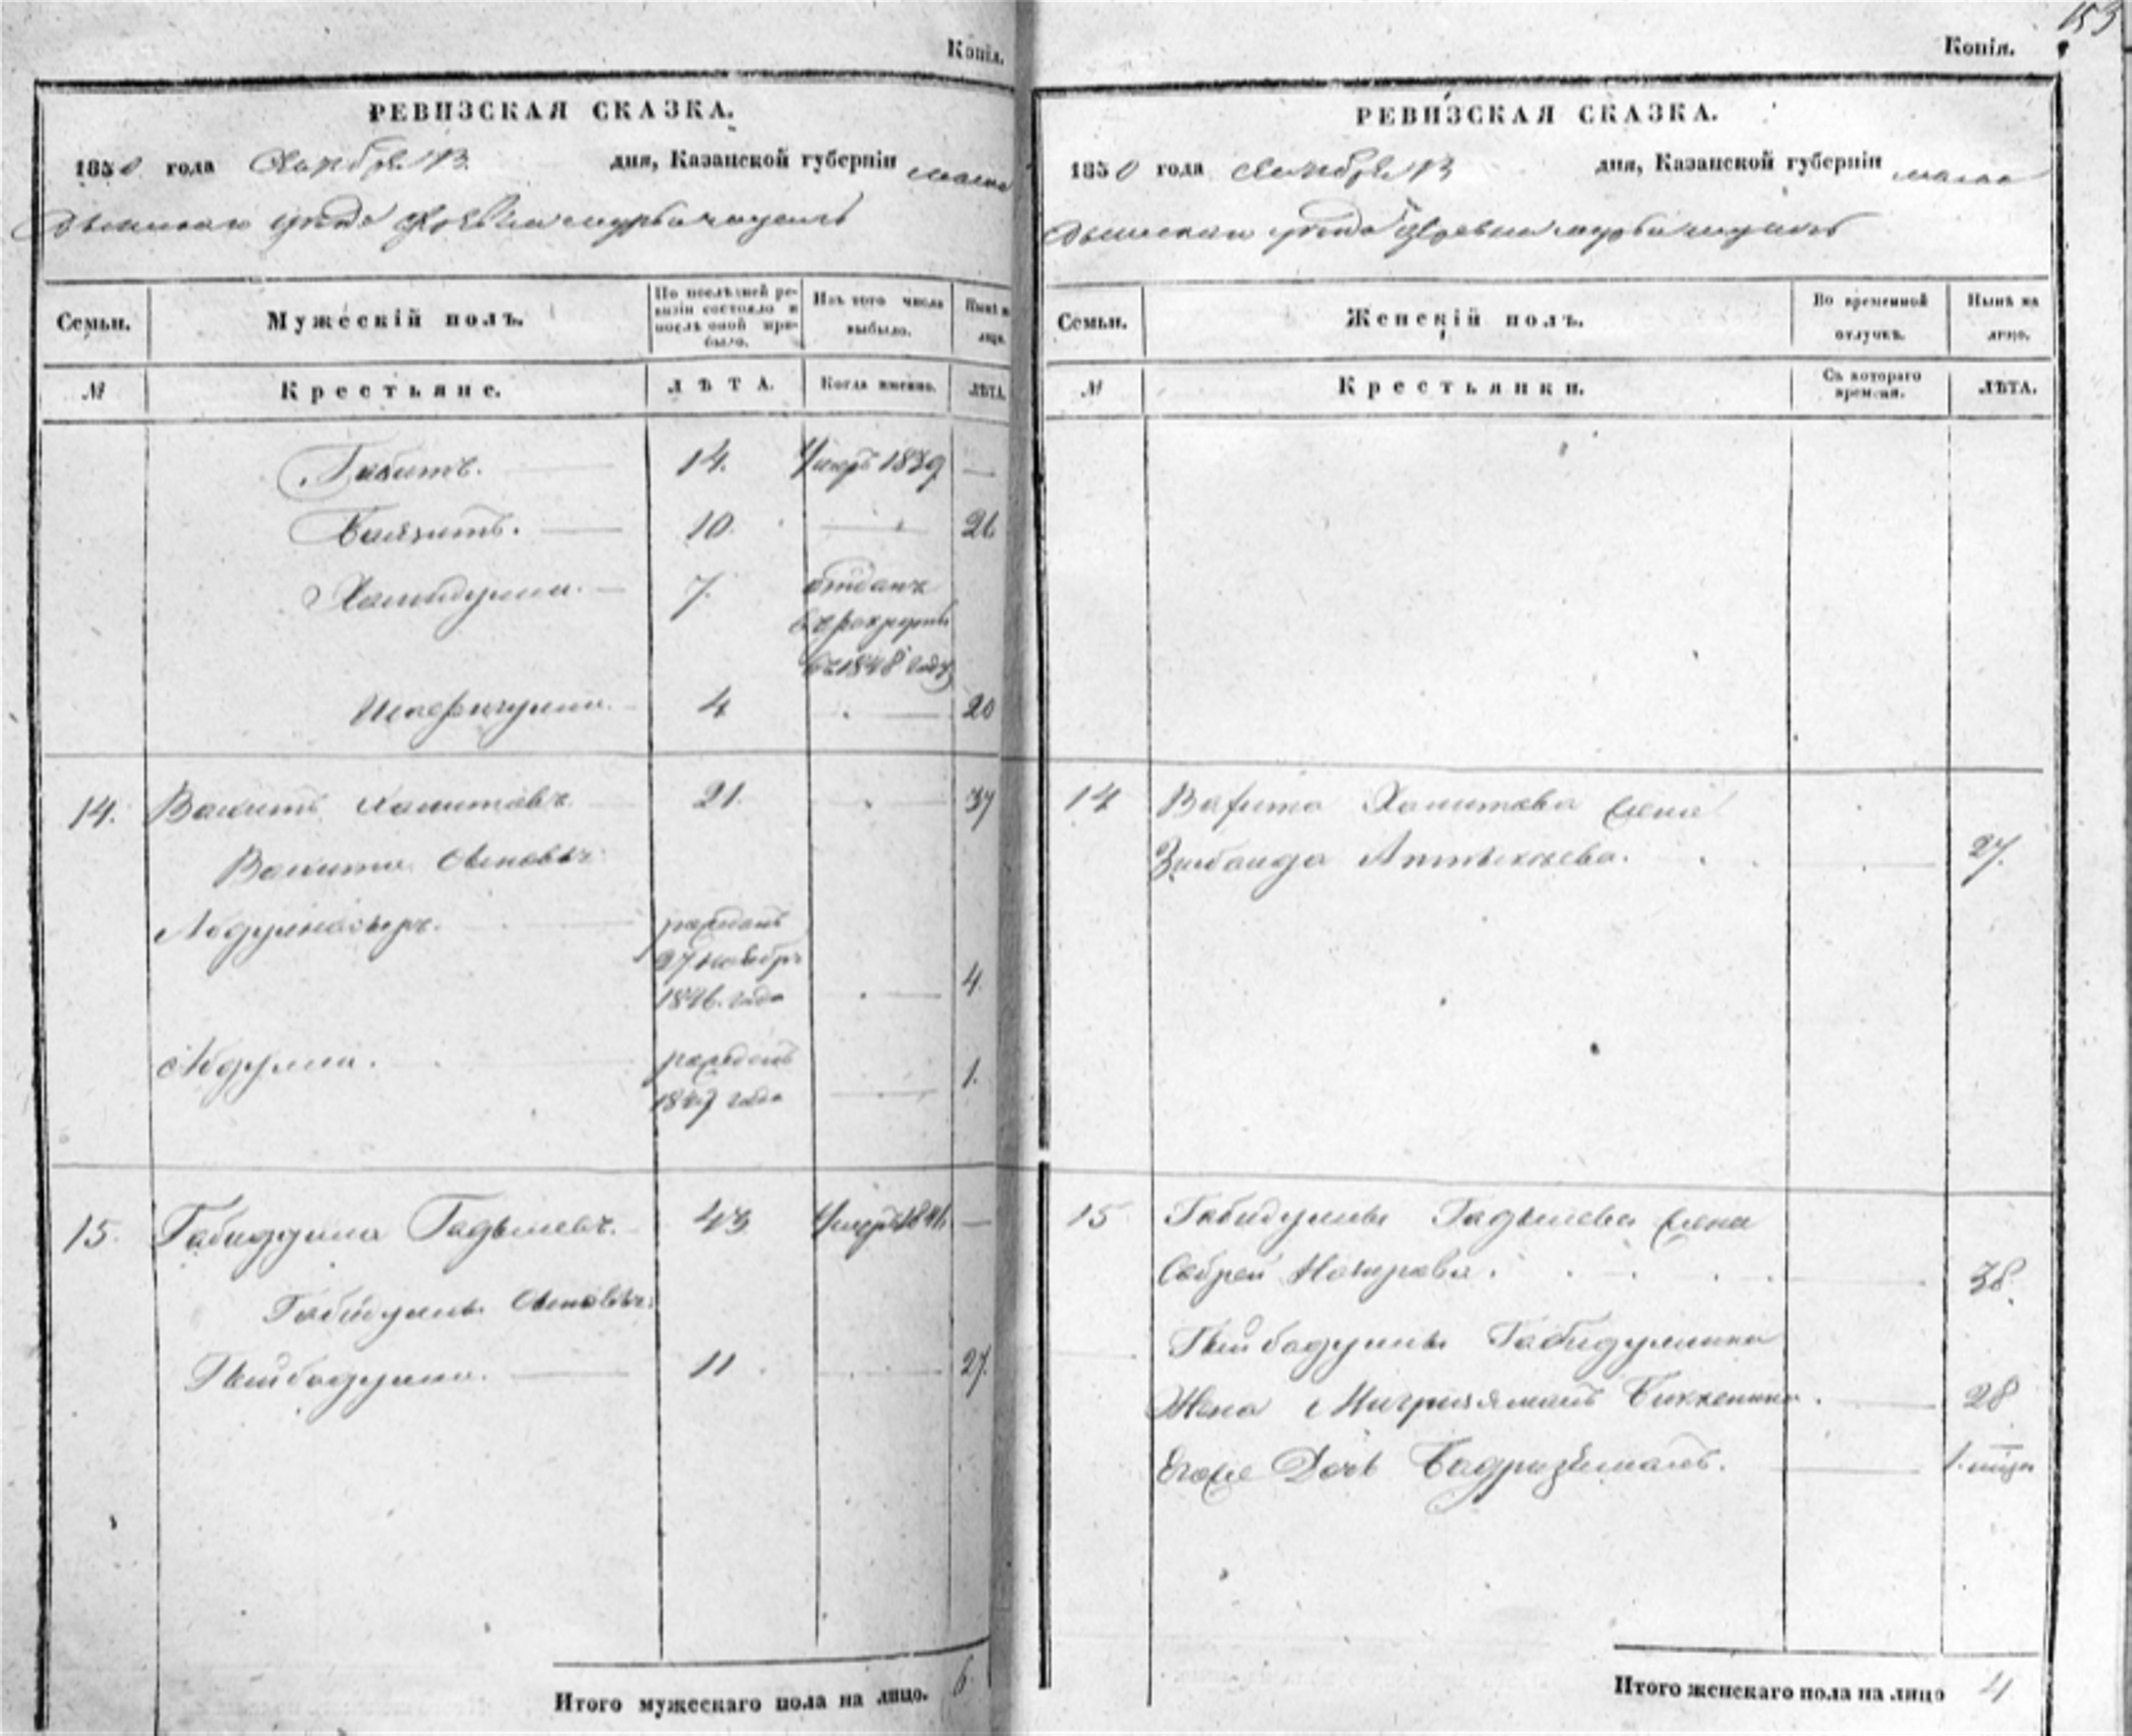 153
Копія.
РЕВИЗСКАЯ СКАЗКА.
1850 года Октября 13 дня, Казанской губерніи мама
дышскаго уезда деревни
Семьи.
Мужескій полъ.
По послѣдней ревизіи состояло и послѣ оной прибыло.
Изъ того числа выбыло.
Нынѣ на лицо.
№
Крестьяне.
ЛѢТА.
Когда именно.
ЛѢТА.
Габитъ. 14. Умеръ 1839 —
Баязитъ. 10. — 26
Хамидулла. 7. отданъ
въ рекруты
въ 1848 году
4 — 20
14. Вахитъ Хамитовъ 21. 37
Вахита Сыновья:
Абдулнасыръ. рожденъ
27 ноября
1846. года — 4.
Абдулла. рожденъ
1849 года — 1.
15. Габидулла Гадыевъ. 43 Умеръ 1841 —
Габидуллы Сыновья:
Гайбадулла. 11 — 27.
Итого мужескаго пола на лицо. 6.
Копія.
РЕВИЗСКАЯ СКАЗКА.
1850 года Октября 13 дня, Казанской губерніи мама
дышскаго уезда деревни
Семьи.
Женскій полъ.
Во временной отлучкѣ.
Нынѣ на лицо.
№
Крестьянки.
Съ котораго времени.
ЛѢТА.
14 Вахита Хамитова жена
27.
15 Габидуллы Гадыева жена
38.
Гайбадуллы Габидуллина
Жена 28
Ихъ Дочь Бадризяманъ.
Итого женскаго пола на лицо 4